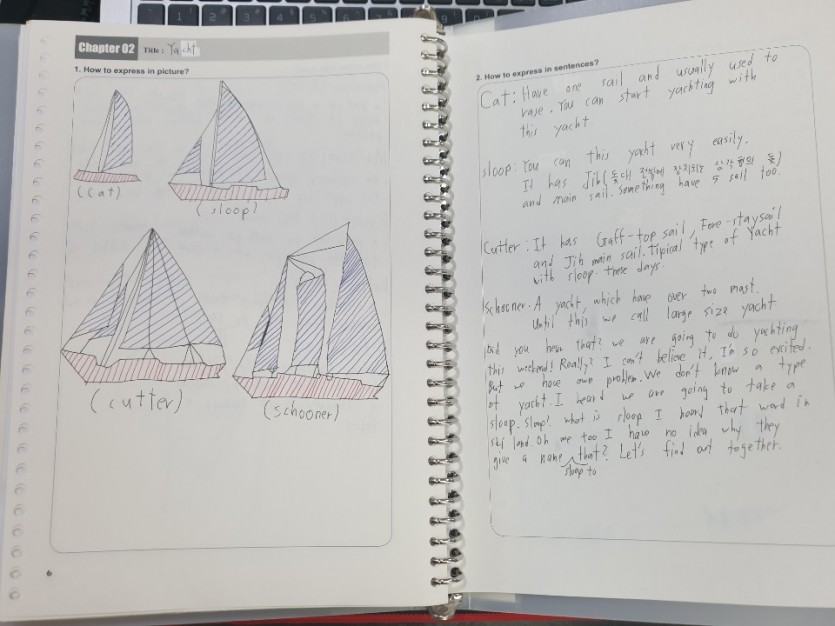 Chapter 02 Title : Yacht
1. How to express in picture?
(cat)
(sloop)
(cutter)
(schooner)
6
2. How to express in sentences?
Cat : Have one sail and usually used to
rase. You can start yachting with
this yacht
sloop : You can this yacht very easily.
It has Jib (돛대 전방에 장치되는 삼각형의 돛)
and main sail. Something have 5 sail too.
Cutter : It has Gaff-top sail, Fore-staysail
and Jib main sail. Tipical type of Yacht
with sloop these days.
Schooner. A yacht, which have over two mast.
Until this we call large size yacht
Did you hear that? we are going to do yachting
this weekend! Really? I can't believe it. I'm so excited.
But we have own problem. We don't know a type
of yacht. I heard we are going to take a
sloop. Sloop! what is sloop I heard that word in
ski land. Oh me too I have no idea why they
give a name that? Let's find out together.
sloop to